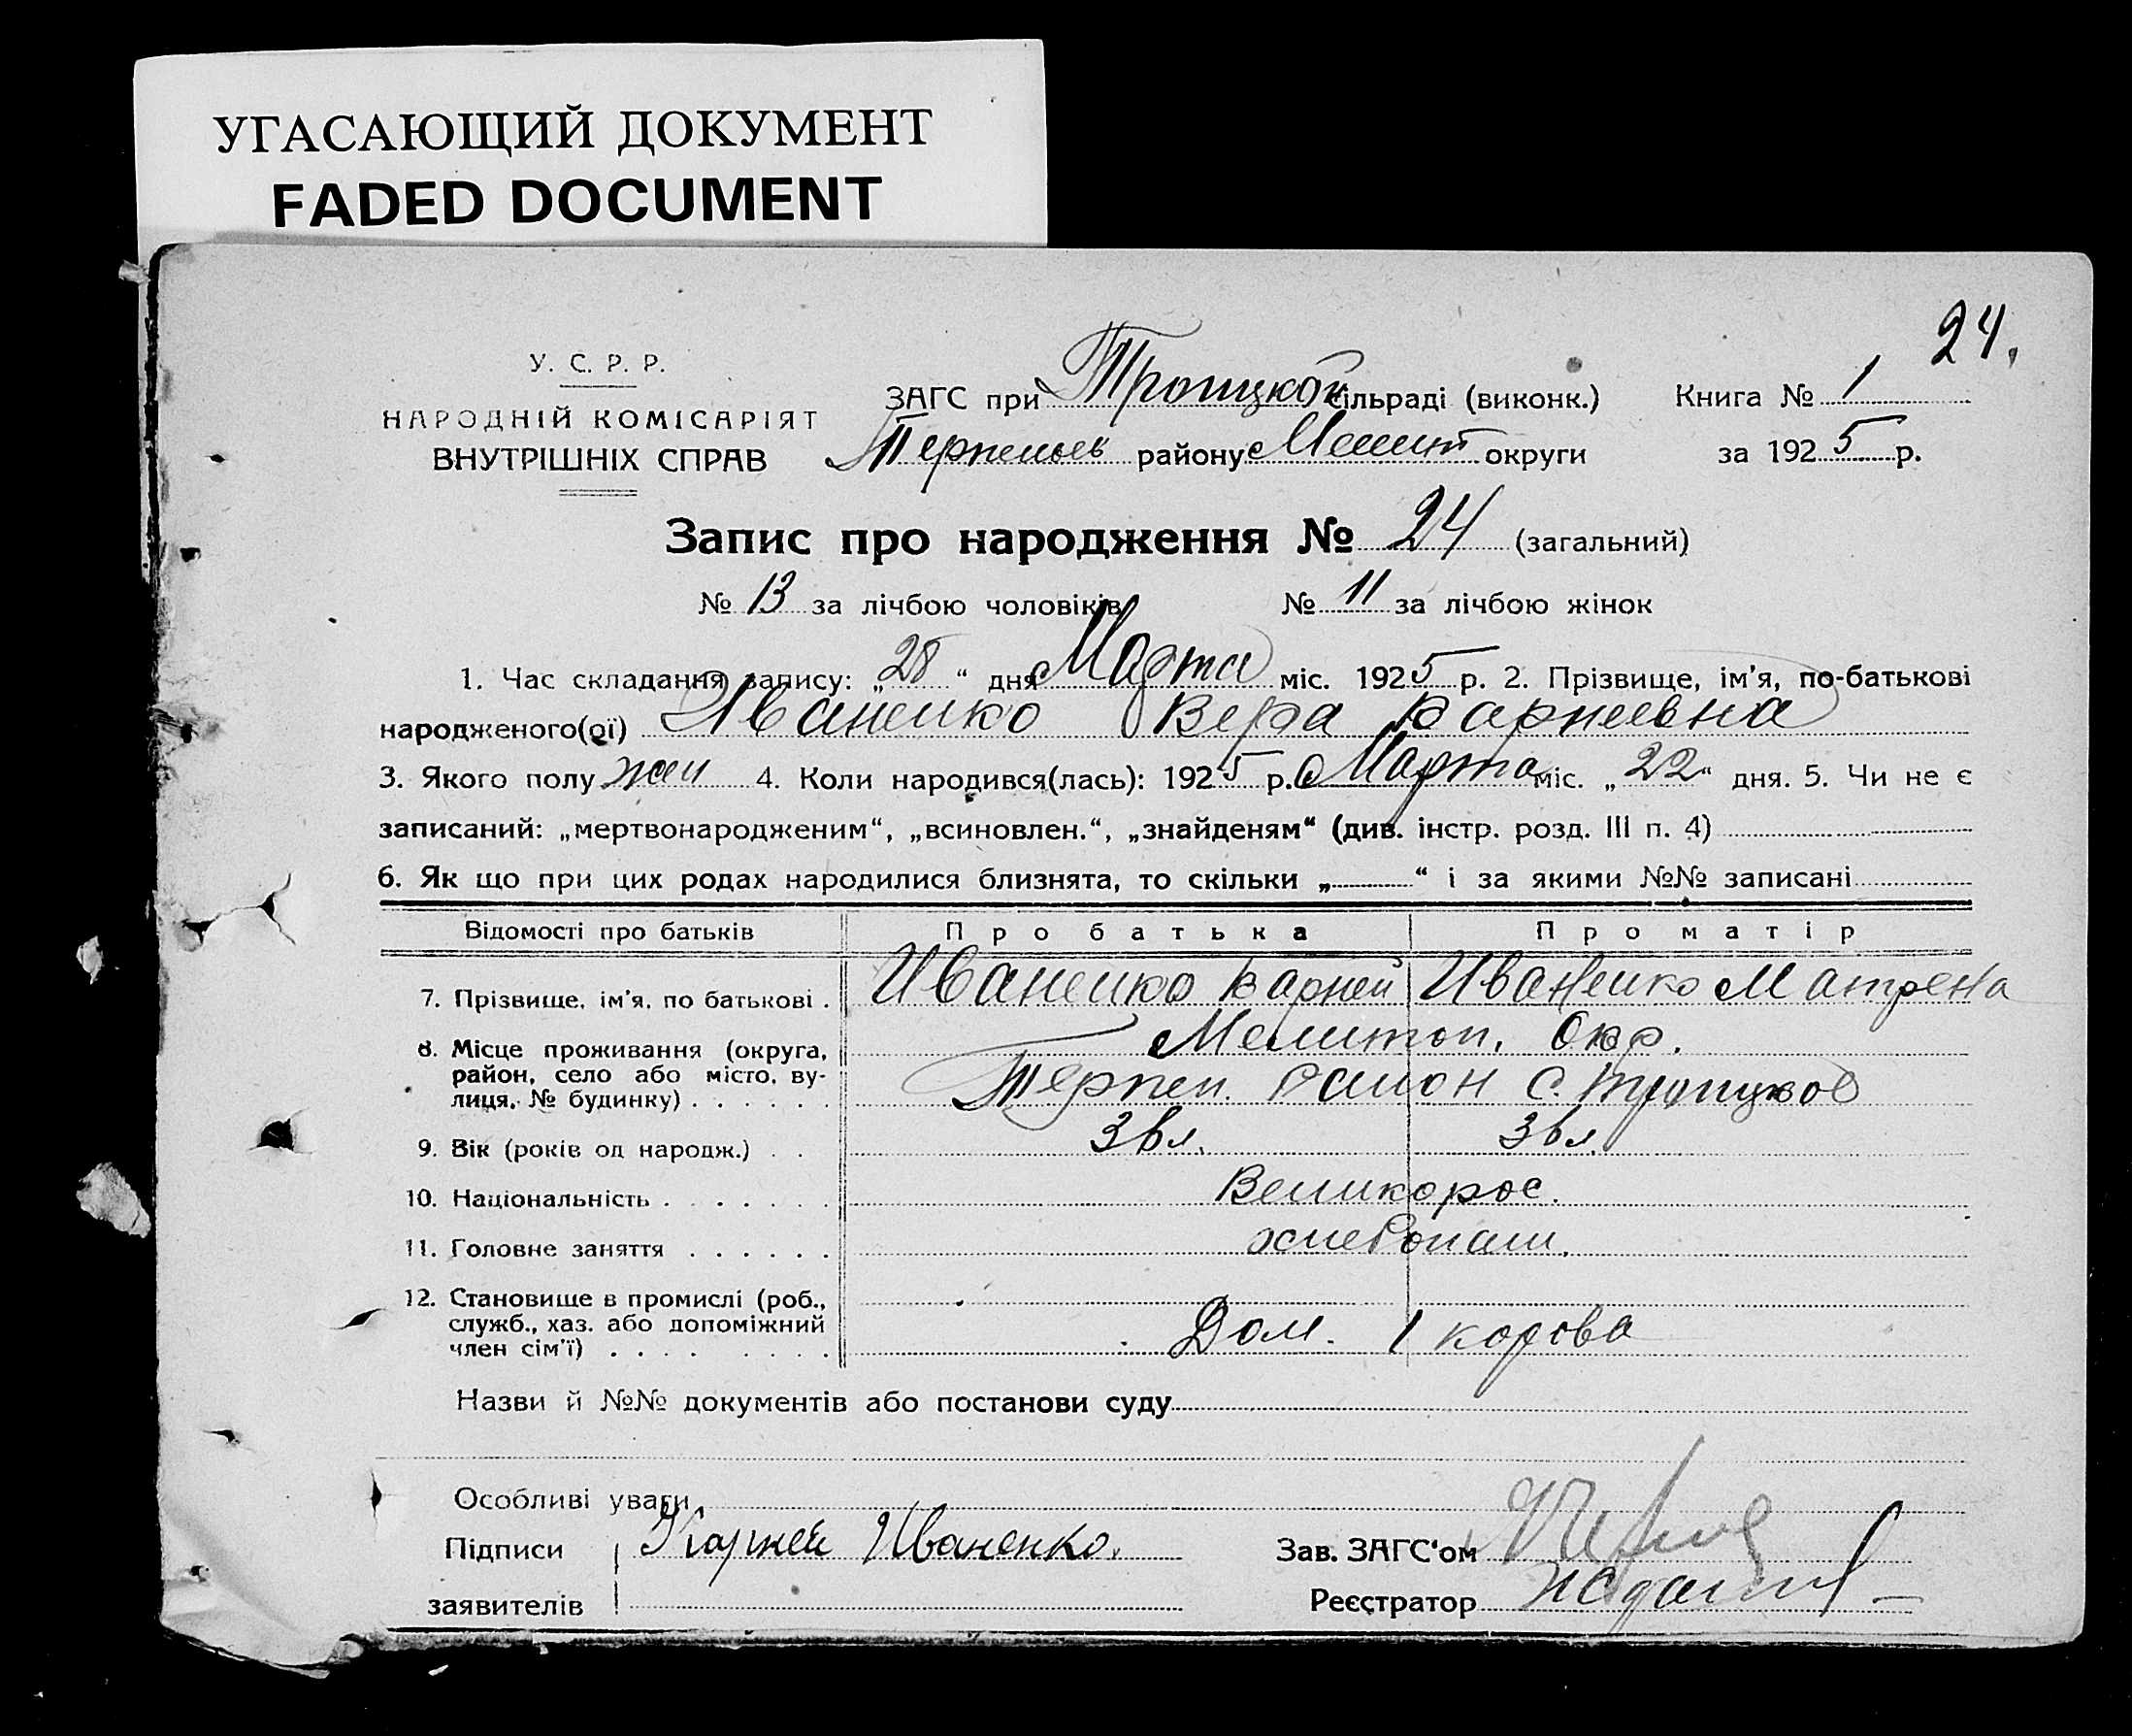 УГАСАЮЩИЙ ДОКУМЕНТ
FADED DOCUMENT
24.
У. С. Р. Р.
НАРОДНІЙ КОМІСАРІЯТ
ВНУТРІШНІХ СПРАВ
ЗАГС при Троицкой сільраді (виконк.) Книга № 1
Терпеньев району Мелит округи за 1925 р.
Запис про народження № 24 (загальний)
№ 13 за лічбою чоловіків № 11 за лічбою жінок
1. Час складання запису: „28“ дня Марта міс. 1925 р. 2. Прізвище, ім'я, по-батькові
народженого(ої) Иваненко Вера Карнеевна
3. Якого полу жен 4. Коли народився(лась): 1925 р. Марта міс. „22“ дня. 5. Чи не є
записаний: „мертвонародженим“, „всиновлен.“, „знайденям“ (див. інстр. розд. III п. 4)
6. Як що при цих родах народилися близнята, то скільки „ “ і за якими №№ записані
Відомості про батьків Про батька Про матір
7. Прізвище, ім'я, по батькові . Иваненко Карней Иваненко Матрена
8. Місце проживання (округа, Мелитоп. Окр.
район, село або місто, ву-
лиця, № будинку) . . . . . . Терпен. район с. Троицкое
9. Вік (років од народж.) . . 36 л. 36 л.
10. Національність . . . . . . . Великорос.
11. Головне заняття . . . . . . хлебопаш.
12. Становище в промислі (роб.,
служб., хаз. або допоміжний
член сім'ї) . . . . . . . . Дом. 1 корова
Назви й №№ документів або постанови суду
Особливі уваги
Підписи Карней Иваненко. Зав. ЗАГС'ом
заявителів Реєстратор